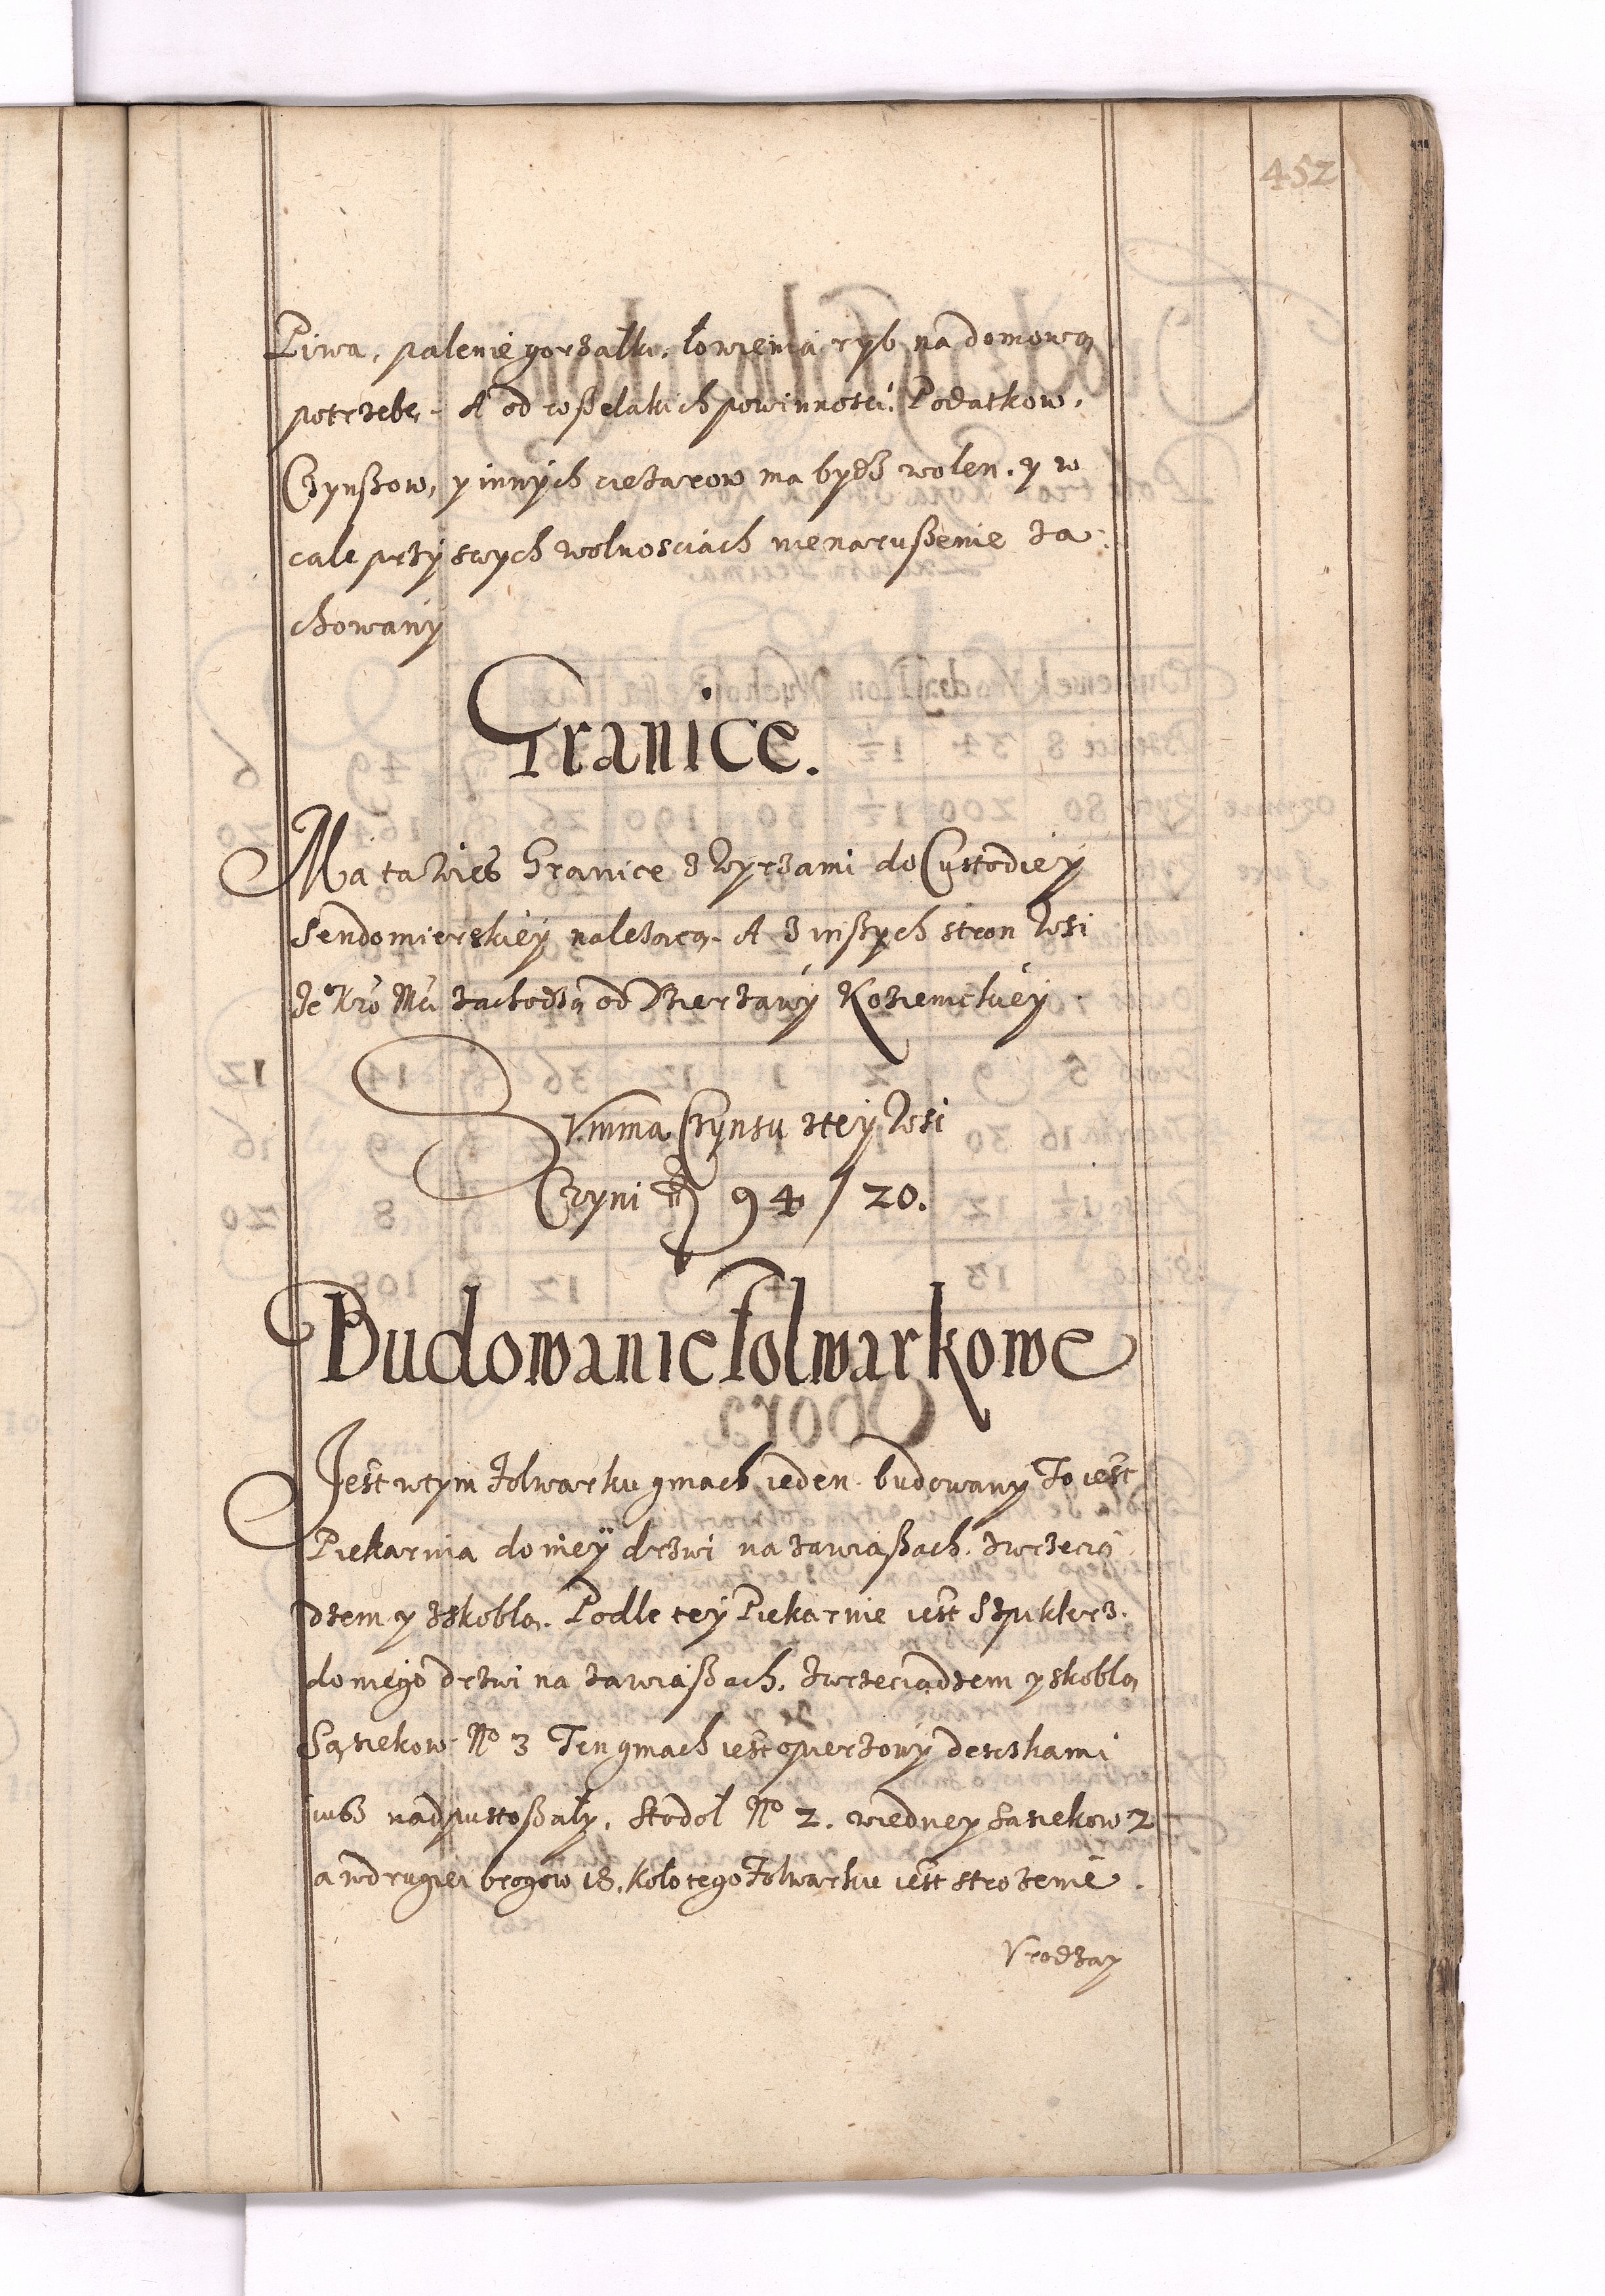 452
Piwa, palenie gorzałki, łowienia ryb na domową
potrzebę. A od wszelakich powinności, Podatkow,
Czynszow, y innych ciężarow ma bydź wolen. y w
cale przy swych wolnosciach nienaruszenie za
chowany
Granice.
Ma ta Wieś Granice z Wyrzami do Custodiey
Sendomierskiey należącą. A z inszych stron Wsi
Je° Kró Mći zachodzą od Dzierżawy Kozienickiey.
Summa Czynsu z tey Wsi
Czyni 94 / 20.
Budowanie folwarkowe
Jest w tym folwarku gmach ieden budowany To iest
Piekarnia do niey drzwi na zawiasach, z wrzecią
dzem y zskoblą. Podle tey Piekarnie iest Szpiklerz.
do niego drzwi na zawiasach, z wrzeciądzem y skoblą
Sąsiekow No 3 Ten gmach iest opierzony deszkami
iusz nadpustoszały. Stodoł No 2. w iedney sąsiekow 2
a w drugiei brogow 18. Koło tego folwarku iest strożenie.
Vrodzay